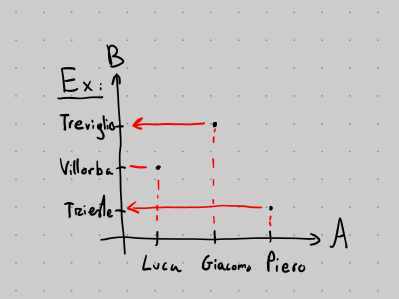 B
Ex:
Treviglio
Villorba
Trieste
A
Luca Giacomo Piero